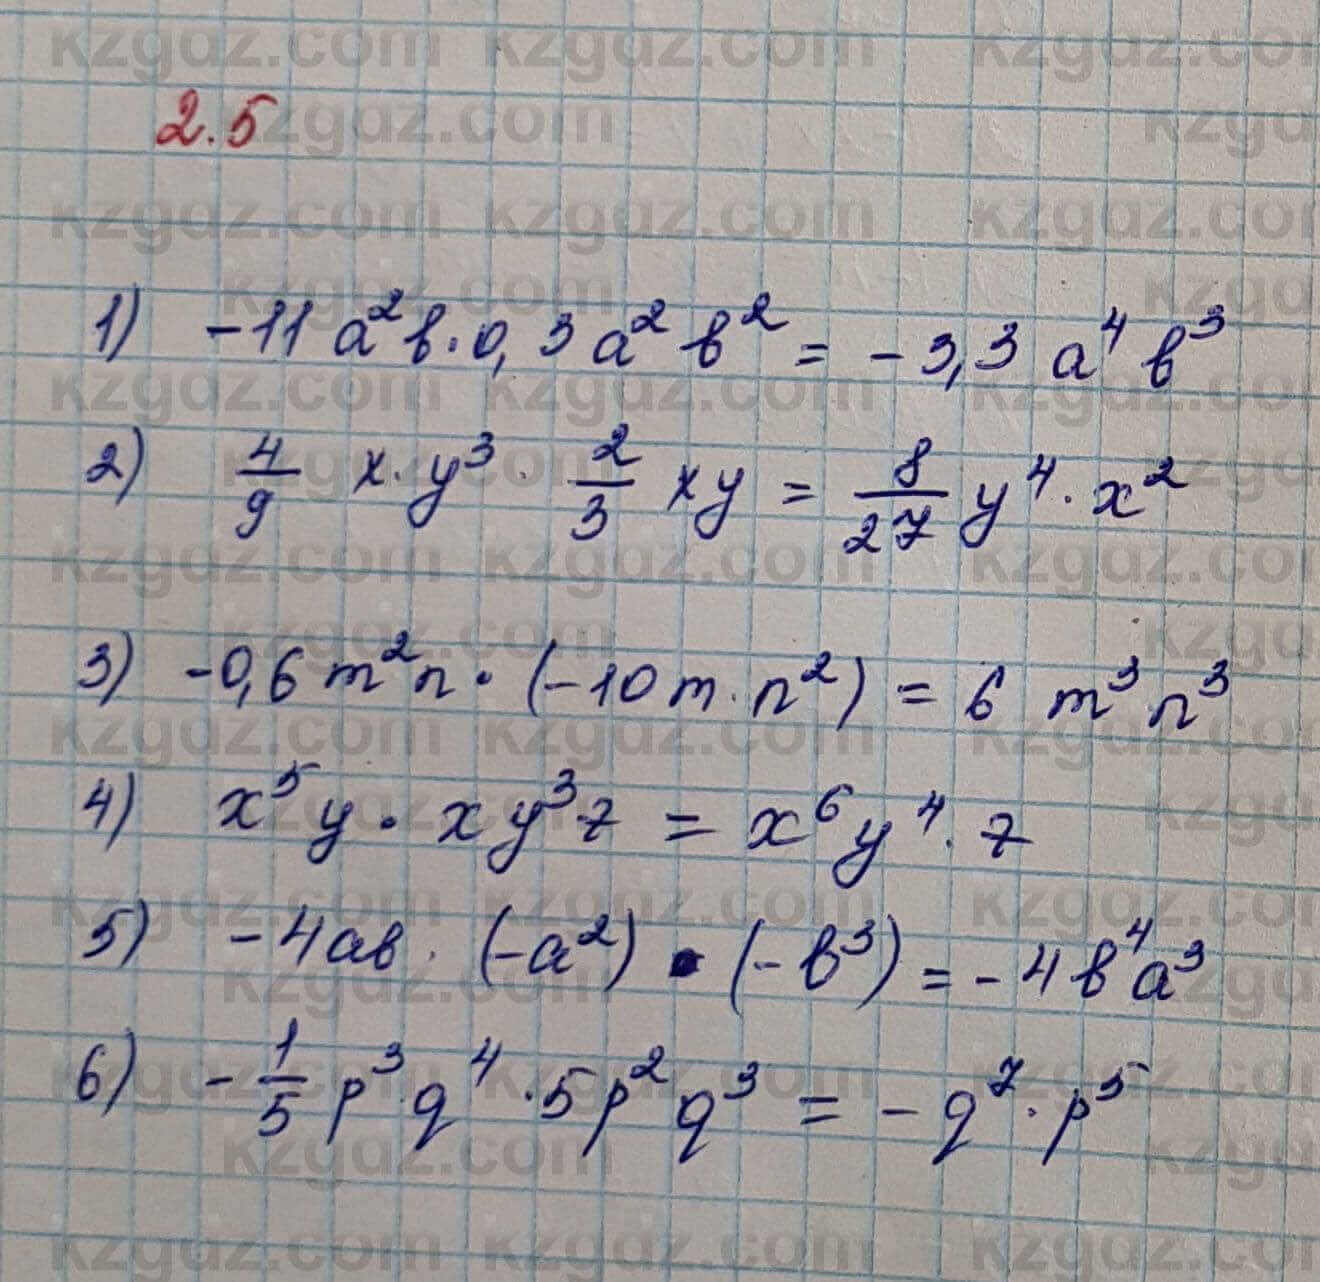 2.5
1) -11a²b·0,3a²b² = -3,3a⁴b³
2) 4/9 x·y³·2/3 xy = 8/27 y⁴·x²
3) -0,6m²n·(-10m·n²) = 6 m³n³
4) x⁵y·xy³z = x⁶y⁴·z
5) -4ab·(-a²)·(-b³) = -4b⁴a³
6) -1/5 p³q⁴·5p²q³ = -q⁷·p⁵
kzgdz.com